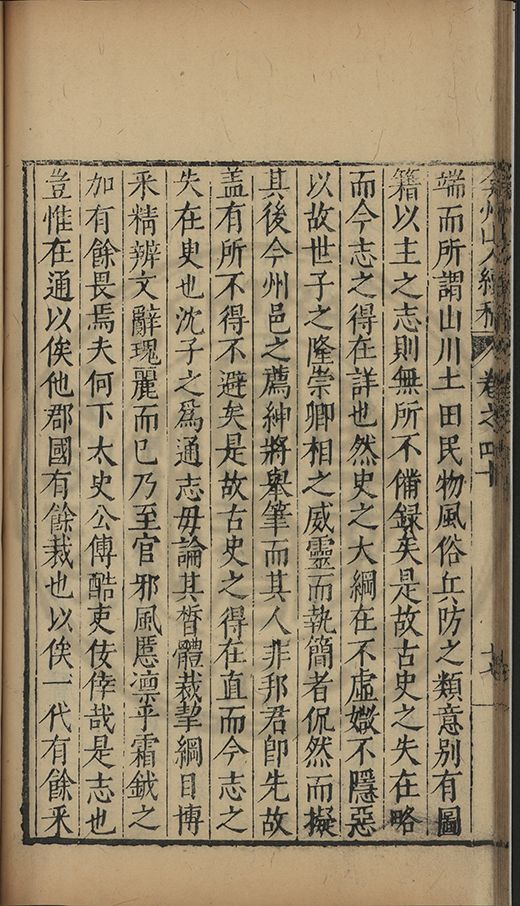 弇州山人續稿 卷之四十
端而所謂山川土田民物風俗兵防之類意別有圖
籍以主之志則無所不備録矣是故古史之失在略
而今志之得在詳也然史之大綱在不虛媺不隱惡
以故世子之隆崇卿相之威靈而執簡者侃然而擬
其後今州邑之薦紳將舉筆而其人非邦君卽先故
盖有所不得不避矣是故古史之得在直而今志之
失在史也沈子之爲通志毋論其晳體裁挈綱目博
釆精辨文辭瑰麗而已乃至官邪風慝凛乎霜鉞之
加有餘畏焉夫何下太史公傳酷吏佞倖哉是志也
豈惟在通以俟他郡國有餘裁也以俟一代有餘釆